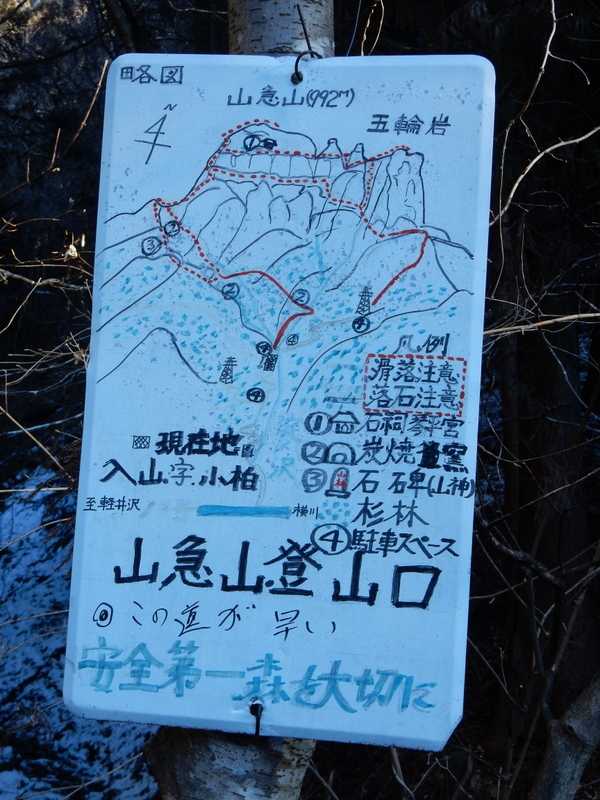 略図
山急山(992m)
五輪岩
N
①
③
②
②
②
④
④
④
④
凡例
滑落注意
落石注意
① 石祠琴平宮
② 炭焼窯
③ 石碑(山神)
杉林
④ 駐車スペース
現在地
入山字小柏
至軽井沢
横川
山急山登山口
この道が早い
安全第一森を大切に